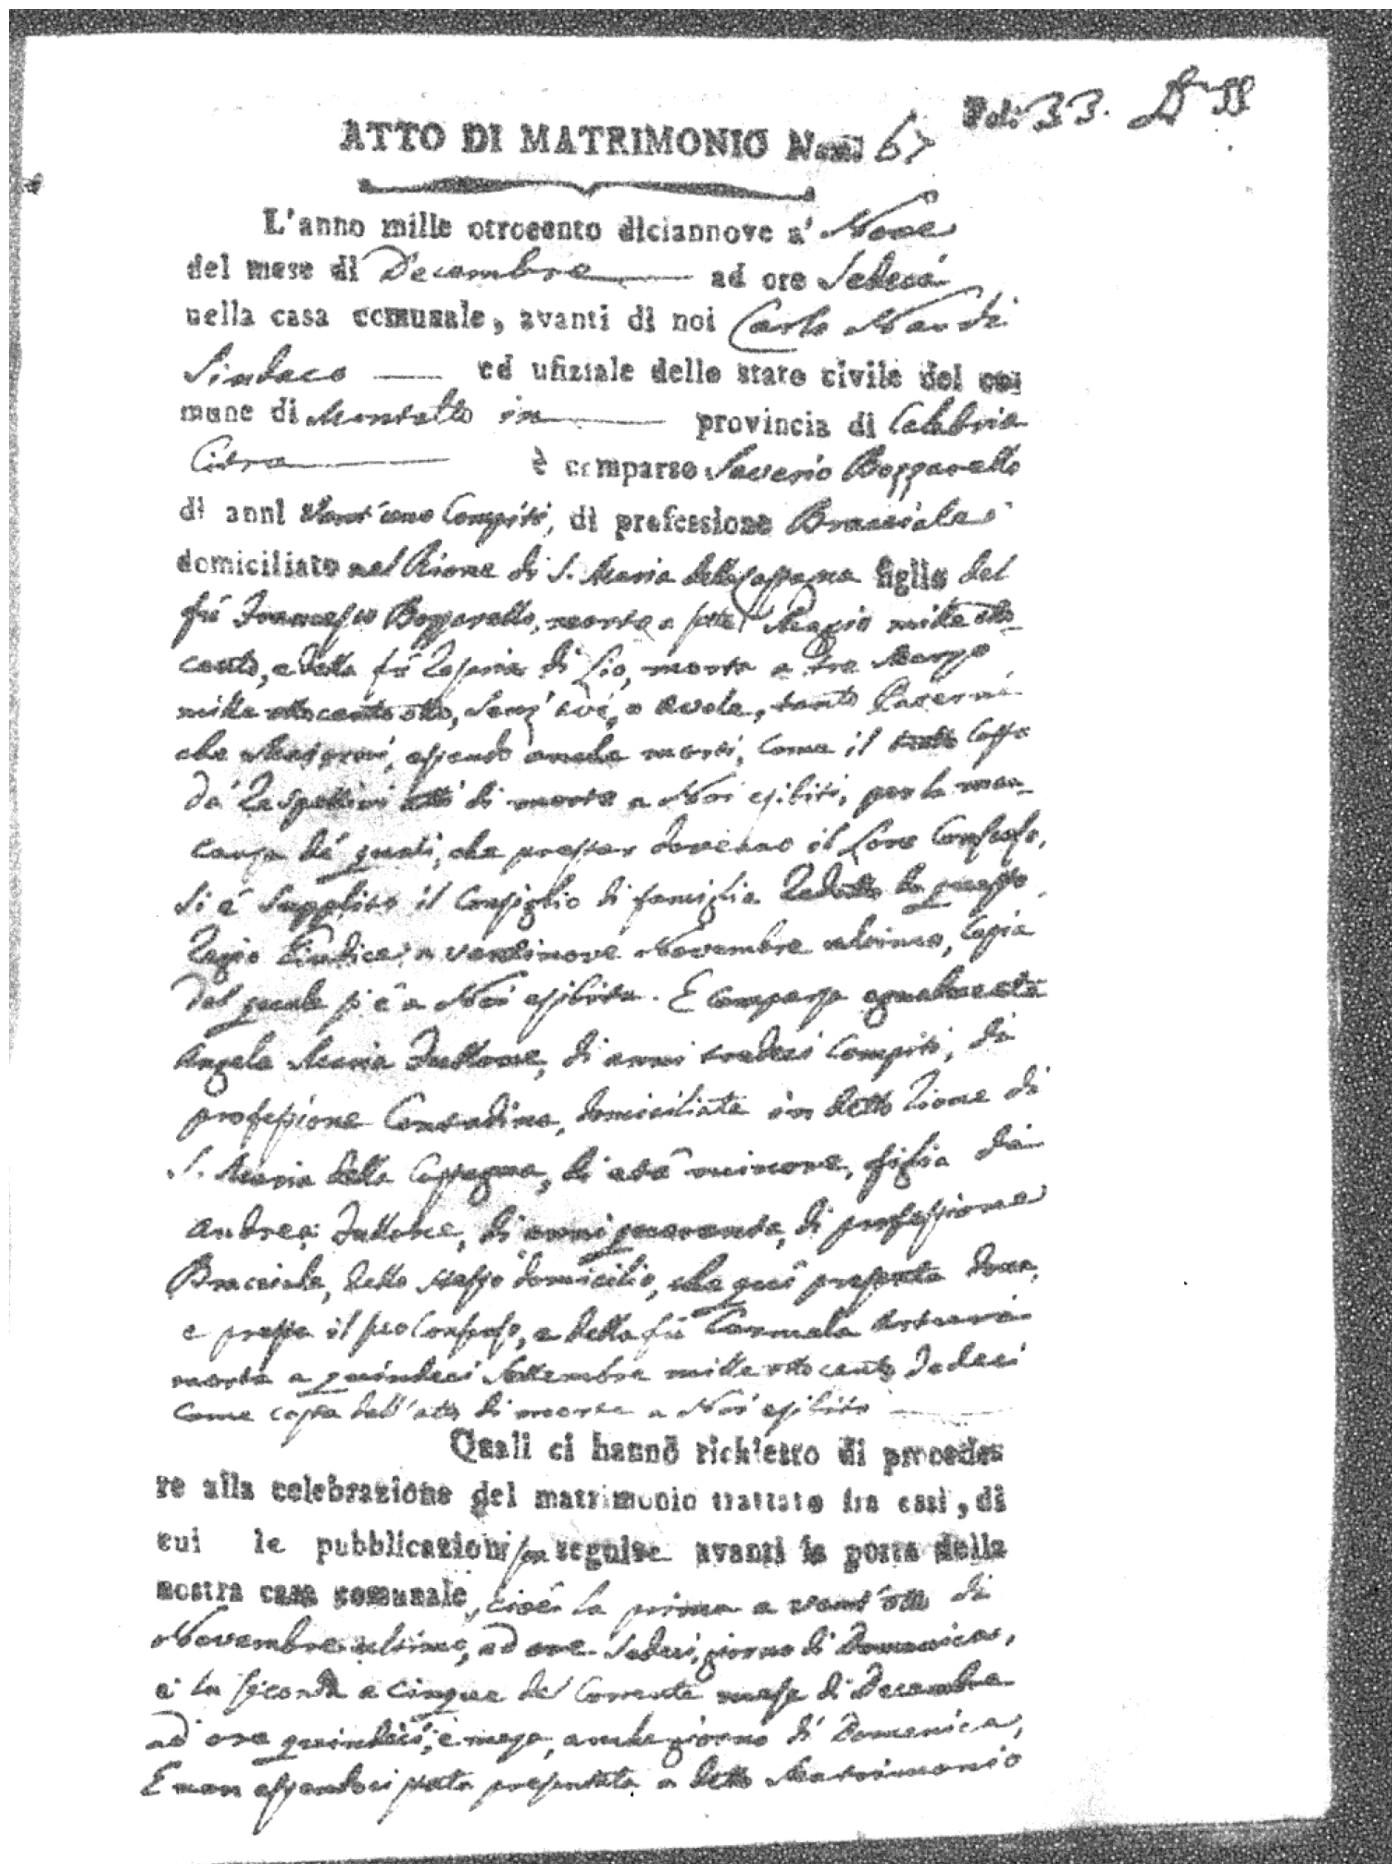 Fol: 33.
ATTO DI MATRIMONIO Num. 67
L'anno mille ottocento diciannove a' Nove
del mese di Decembre ad ore Sedeci
nella casa comunale, avanti di noi Carlo Nardi
Sindaco ed ufiziale dello stato civile del co-
mune di Montalto in provincia di Calabria
Citra è comparso Saverio Bozzarello
di anni Vent'uno Compiti, di professione Bracciale
domiciliato nel Rione di S. Maria della figlio del
fù Francesco Bozzarello, morto a sette Maggio mille otto
cento, e della fù di Lio, morta a tre Marzo
mille ottocento otto, senz'avi, o avole, tanto Paterni
che Materni, essendo anche morti, come il tutto costa
da' rispettivi atti di morte a Noi esibiti, per la man-
canza de' quali, che prestar dovevano il Loro Consenso,
si è supplito il Consiglio di famiglia da questo
Regio Giudice a ventinove Novembre ultimo, Copia
del quale si è a Noi esibita. E comparsa egualmente
Angela Maria Tuttone, di anni tredeci Compiti, di
professione Contadina, domiciliata in detto Rione di
S. Maria della di età minore, figlia di
Andrea Tuttone, di anni quaranta, di professione
Bracciale, dello stesso domicilio, che quì presente dona,
e presta il suo Consenso, e della fù Carmela Arturi
morta a quindeci Settembre mille ottocento dodeci
come costa dall'atto di morte a Noi esibito
Quali ci hanno richiesto di procede-
re alla celebrazione del matrimonio trattato fra essi, di
cui le pubblicazioni son seguite avanti la porta della
nostra casa comunale, cioè la prima a vent'otto di
Novembre ultimo, ad ore Sedeci, giorno di Domenica,
e la seconda a cinque del Corrente mese di Decembre
ad ore quindeci, e meza, anche giorno di Domenica,
E non essendoci stata presentata a detto Matrimonio